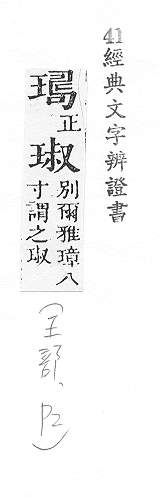 41經典文字辨證書
正
琡
別爾雅璋八
寸謂之琡
(王部、P2)